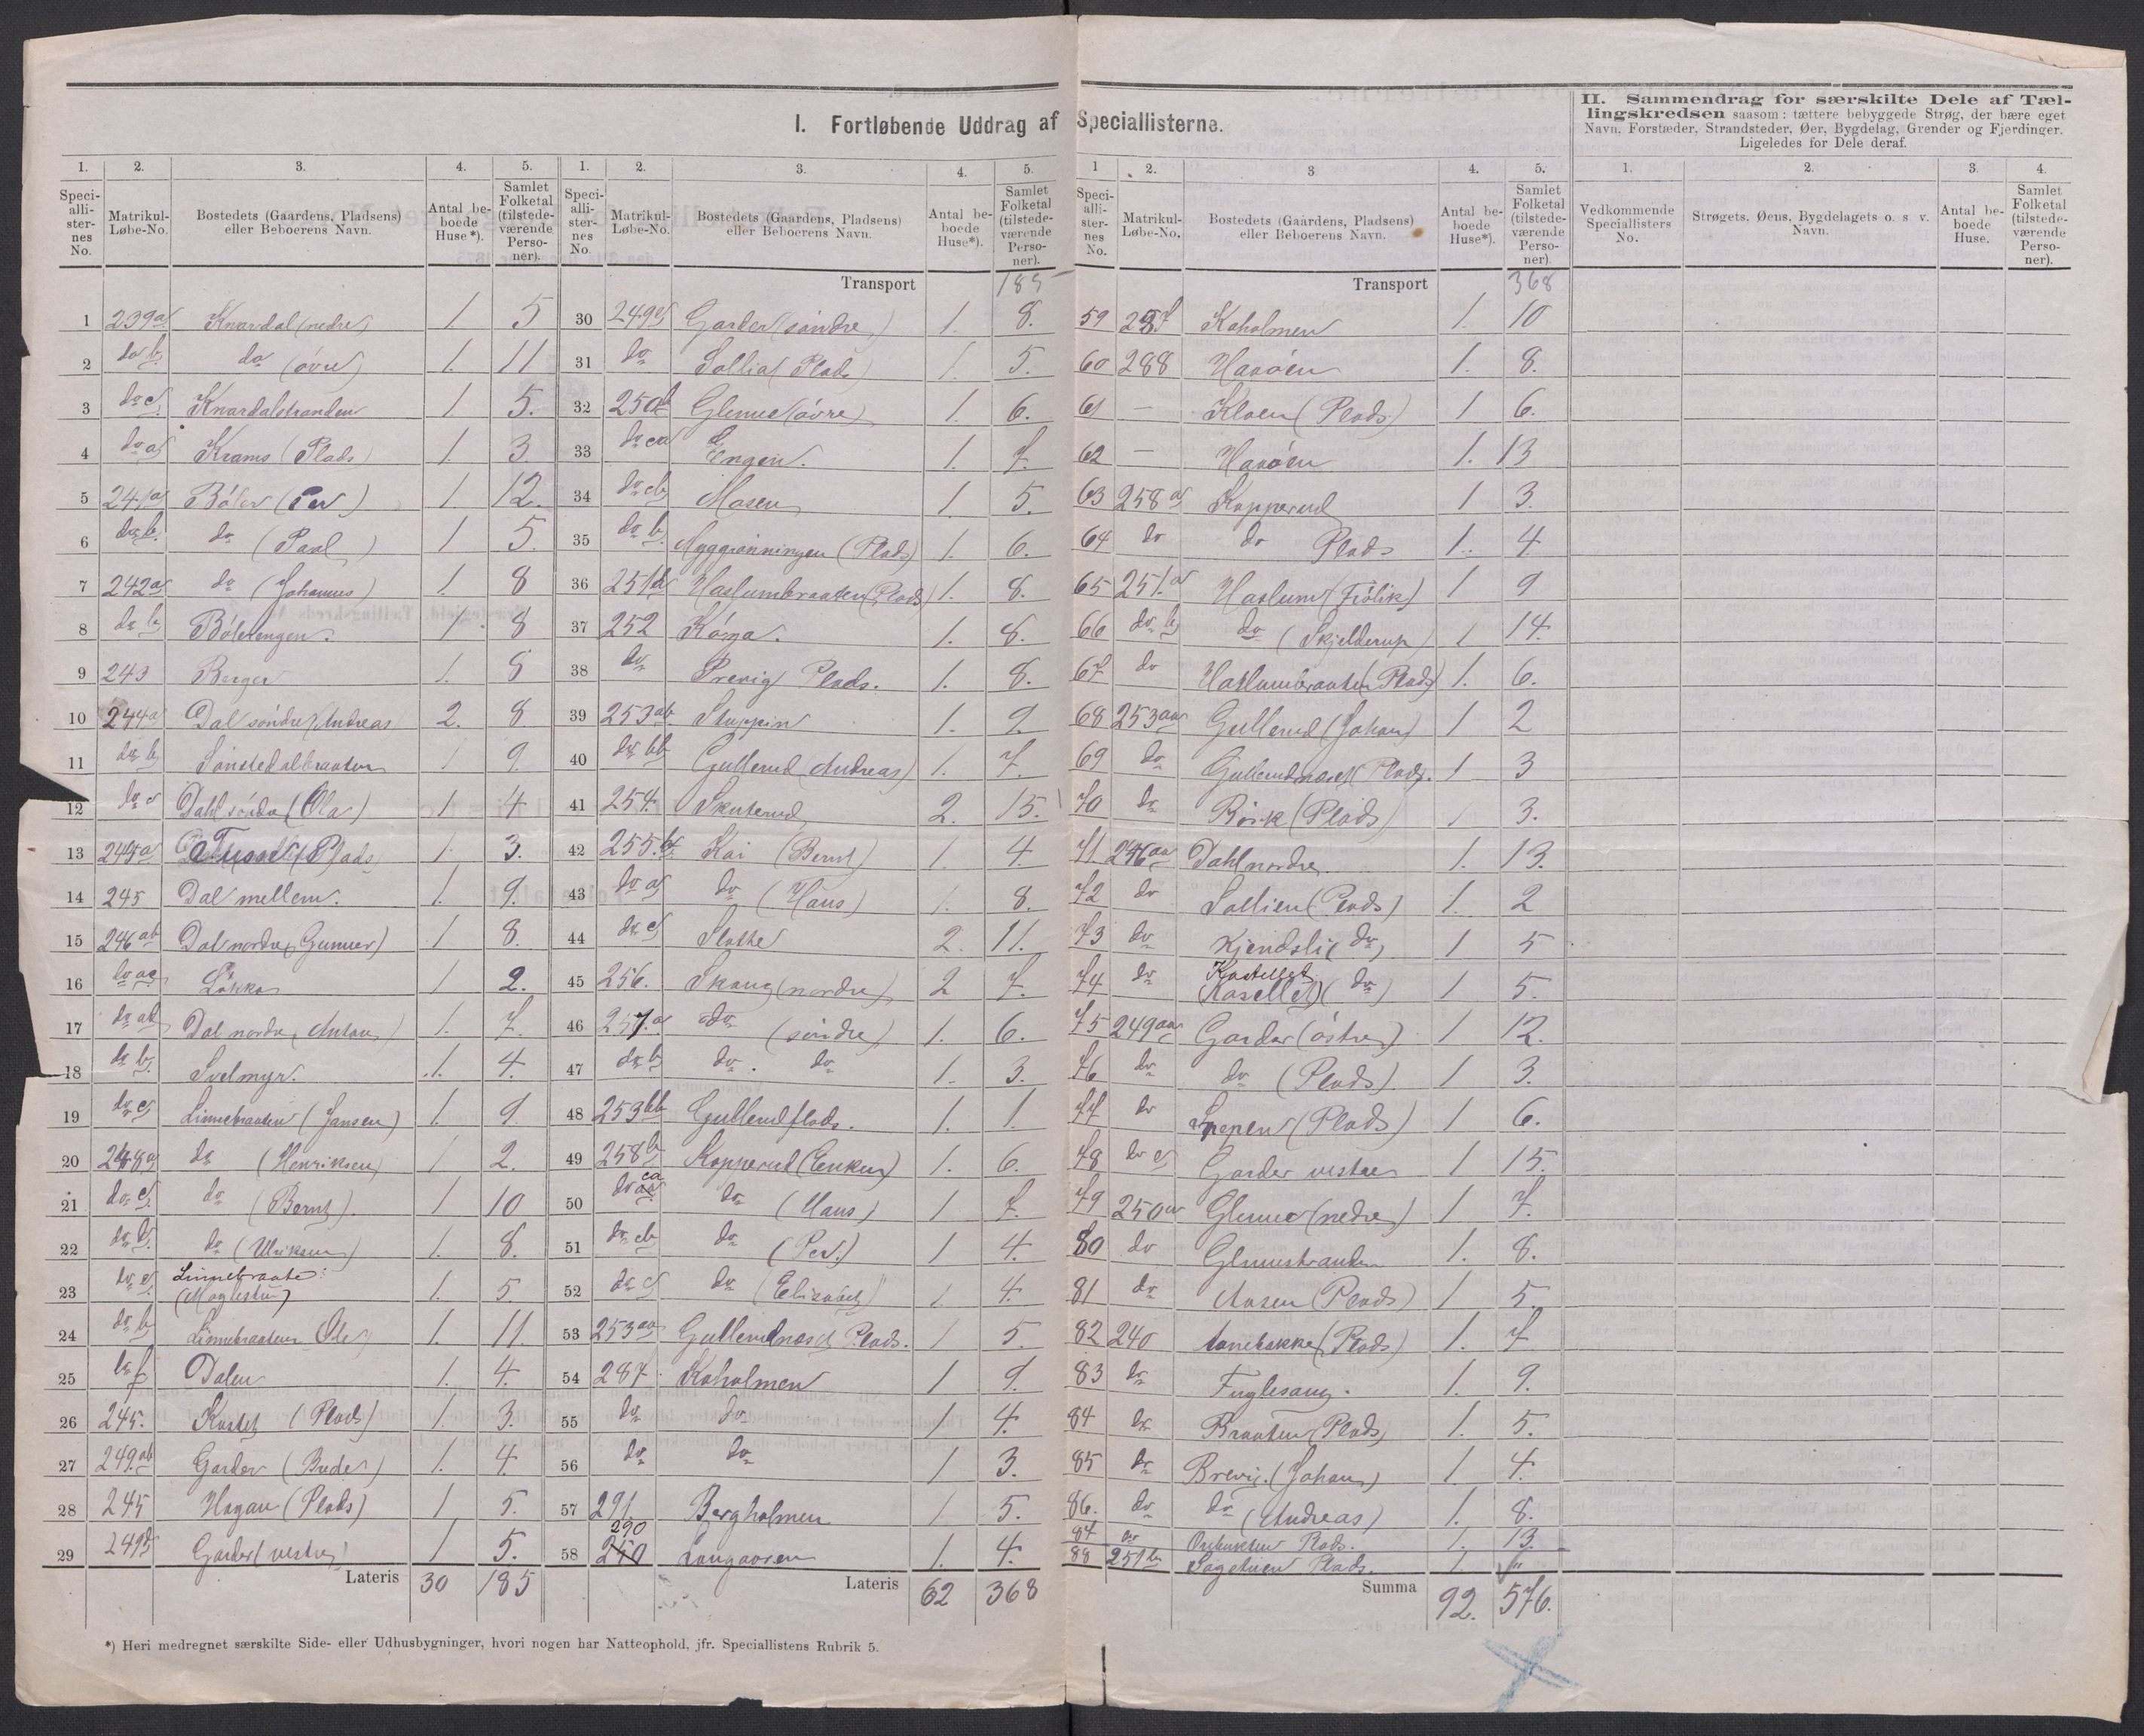 I. Fortløbende Uddrag af Speciallisterne.
II. Sammendrag for særskilte Dele af Tæl-
lingskredsen saasom: tættere bebyggede Strøg, der bære eget
Navn, Forstæder, Strandsteder, Øer, Bygdelag, Grender og Fjerdinger.
Ligeledes for Dele deraf.
1. 2. 3. 4. 5.
Speci-alli-ster-nes No. Matrikul-Løbe-No. Bostedets (Gaardens, Pladsens) eller Beboerens Navn. Antal be-boede Huse*). Samlet Folketal (tilstede-værende Perso-ner).
1 239a Knardal (nedre) 1 5
2 do b do (øvre) 1. 11
3 do c Knardalstranden 1 5.
4 do a Krams (Plads) 1. 3
5 241a Böler (Per) 1 12.
6 do b. do (Paal) 1 5.
7 242a do (Johannes) 1. 8
8 do b Bölerengen. 1 8
9 243 Berger 1. 8
10 244a Dal söndre (Andreas 2. 8
11 do b Sönstedalbraaten 1 9.
12 do c Dahl söndre (Ola) 1 4
13 (Plads) 1. 3.
14 245 Dal mellem. 1. 9.
15 246ab Dal nordre (Gunner) 1 8.
16 do Lökka 1 2.
17 do ab Dal nordre (Anton) 1. 7.
18 do b. Svelmyr. 1. 4.
19 do c Linnebraaten (Jansen) 1. 9.
20 248a do (Henriksen) 1 2.
21 do c. do (Bernt). 1 10
22 do do (Ulriksen) 1. 8.
23 do Linnebraate: 1. 5.
24 do b Linnebraaten Ole 1. 11.
25 do f Dalen 1. 4.
26 245. Kastet (Plads) 1. 3.
27 249ab Garder (Brede) 1. 4.
28 245 Hagan (Plads) 1 5.
29 249 Garder (vestre) 1 5.
Lateris 30 185
1. 2. 3. 4. 5.
Speci-alli-ster-nes No. Matrikul-Løbe-No. Bostedets (Gaardens, Pladsens) eller Beboerens Navn. Antal be-boede Huse*). Samlet Folketal (tilstede-værende Perso-ner).
Transport 185
30 249 Garder (söndre) 1. 8.
31 do Sollia (Plads) 1. 5.
32 250 Glenne (övre) 1. 6.
33 do Engen. 1. 7.
34 do Mosen 1 5.
35 do b. Nyggrönningen (Plads) 1. 6.
36 251 Haslumbraaten (Plads) 1. 8.
37 252 1. 8.
38 do Previg Plads. 1. 8.
39 253ab Stuppin 1. 9.
40 do bb Gullerud (Andreas) 1. 7.
41 254. Skuterud 2. 15.
42 255. Kai (Bernt) 1. 4
43 do a do (Hans) 1. 8.
44 do c Slotte 2. 11.
45 256. Skaug (nordre) 2 7.
46 257.a do (söndre) 1. 6.
47 do b do. do 1. 3.
48 253bb Gullerud plads. 1. 1.
49 258b Kopperud (Enken) 1. 6.
50 do ca do (Hans) 1 7.
51 do cb do (Per.) 1 4.
52 do c do (Elisabet) 1 4.
53 253aa Gullerudnæset Plads. 1 5.
54 287. Kaholmen 1 9.
55 do do 1 4.
56 do do 1 3.
57 291. Bergholmen 1 5.
58 290 Langaaren 1. 4.
Lateris 62 368
1 2. 3 4. 5.
Speci-alli-ster-nes No. Matrikul-Løbe-No. Bostedets (Gaardens, Pladsens) eller Beboerens Navn. Antal be-boede Huse*). Samlet Folketal (tilstede-værende Perso-ner)
Transport 368
59 287 Kaholmen 1. 10
60 288 Haaöen 1. 8.
61 — Kloen (Plads) 1 6.
62 — Haaöen 1. 13
63 258a Kopperud 1 3.
64 do do Plads 1. 4.
65 251.a Haslum (Frölik) 1 9
66 do b do (Skjelderup) 1 14.
67 do Haslumbraaten (Plads) 1. 6.
68 253aa Gullerud (Johan) 1 2
69 do Gullerudnæset (Plads). 1 3
70 do Börk (Plads) 1 3.
71 246aa Dahl nordre. 1. 13.
72 do Sollien (Plads) 1. 2
73 do Kjendsli (do) 1 5
74 do Kastellet (Kasellet) (do) 1 5.
75 249aa Garder (östre) 1 12.
76 do do (Plads) 1 3.
77 do (Plads) 1 6.
78 do c Garder vestre 1 15.
79 250a Glenne (nedre) 1 7.
80 do Glennestranden 1. 8.
81 do Aasen (Plads) 1 5
82 240 (Plads) 1. 7
83 do Fuglesang. 1. 9.
84 do Braaten (Plads) 1. 5.
85 do Brevig. (Johan) 1 4.
86. do do (Andreas) 1. 8.
87 do Plads. 1. 13.
88 251b Sagstuen Plads. 1. "
Summa 92. 576.
1. 2. 3. 4.
Vedkommende Speciallisters No. Strøgets, Øens, Bygdelagets o. s v. Navn. Antal be-boede Huse. Samlet Folketal (tilstede-værende Perso-ner).
*) Heri medregnet særskilte Side- eller Udhusbygninger, hvori nogen har Natteophold, jfr. Speciallistens Rubrik 5.